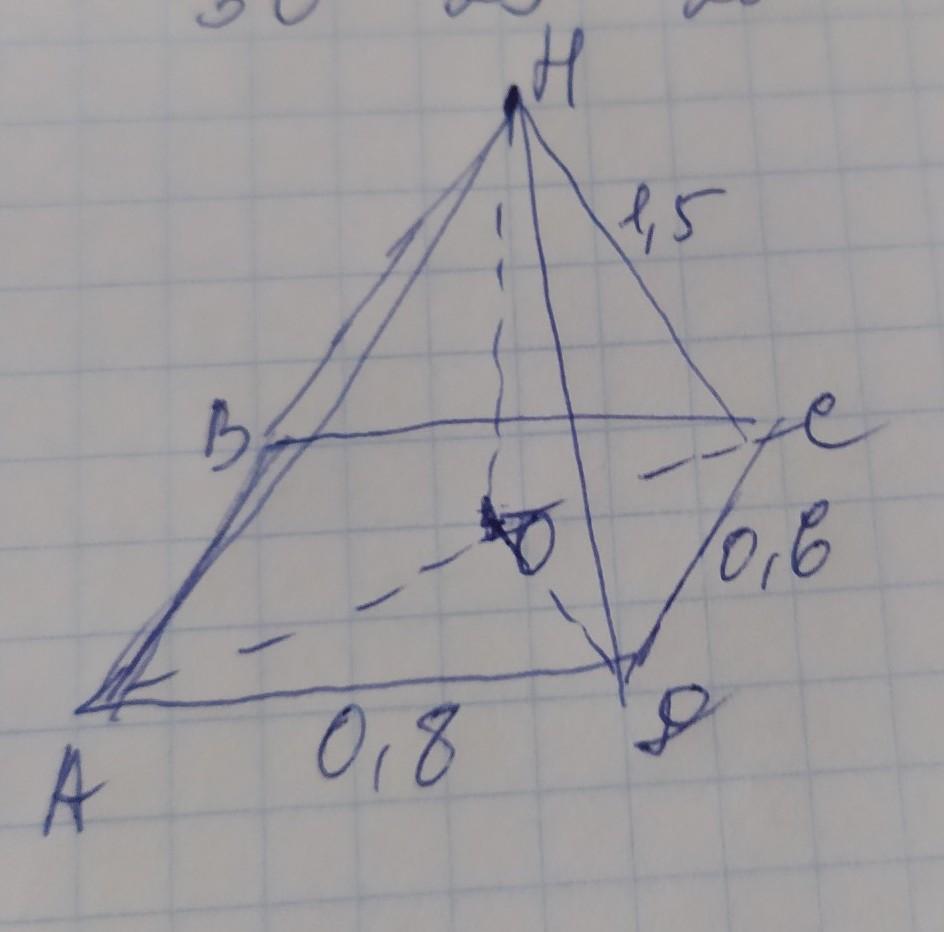 H
1,5
B
C
O
0,6
D
0,8
A